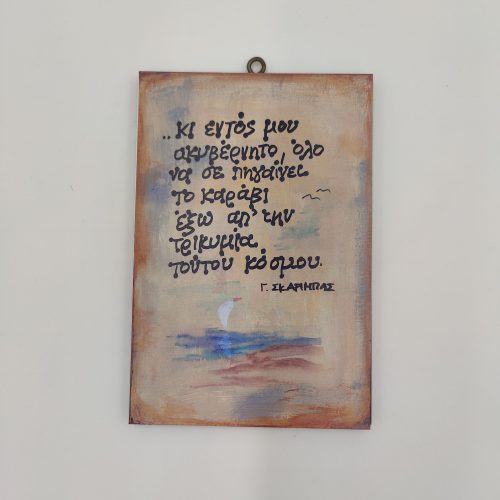 ..κι εντός μου
ακυβέρνητο, όλο
να σε πηγαίνει
το καράβι
έξω απ' την
τρικυμία
τούτου κόσμου.
Γ. ΣΚΑΡΙΜΠΑΣ